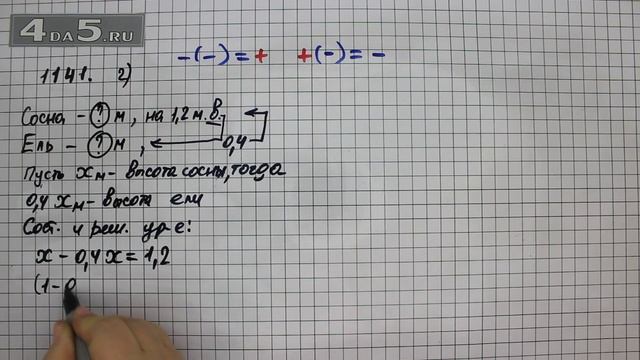 4DA5.RU
-(-)=+ +(-)=-
1141. 2)
Сосна - ? м, на 1,2 м. в.
Ель - ? м, 0,4
Пусть x м - высота сосны, тогда
0,4 x м - высота ели
Сост. и реш. ур-е:
x - 0,4x = 1,2
(1-0